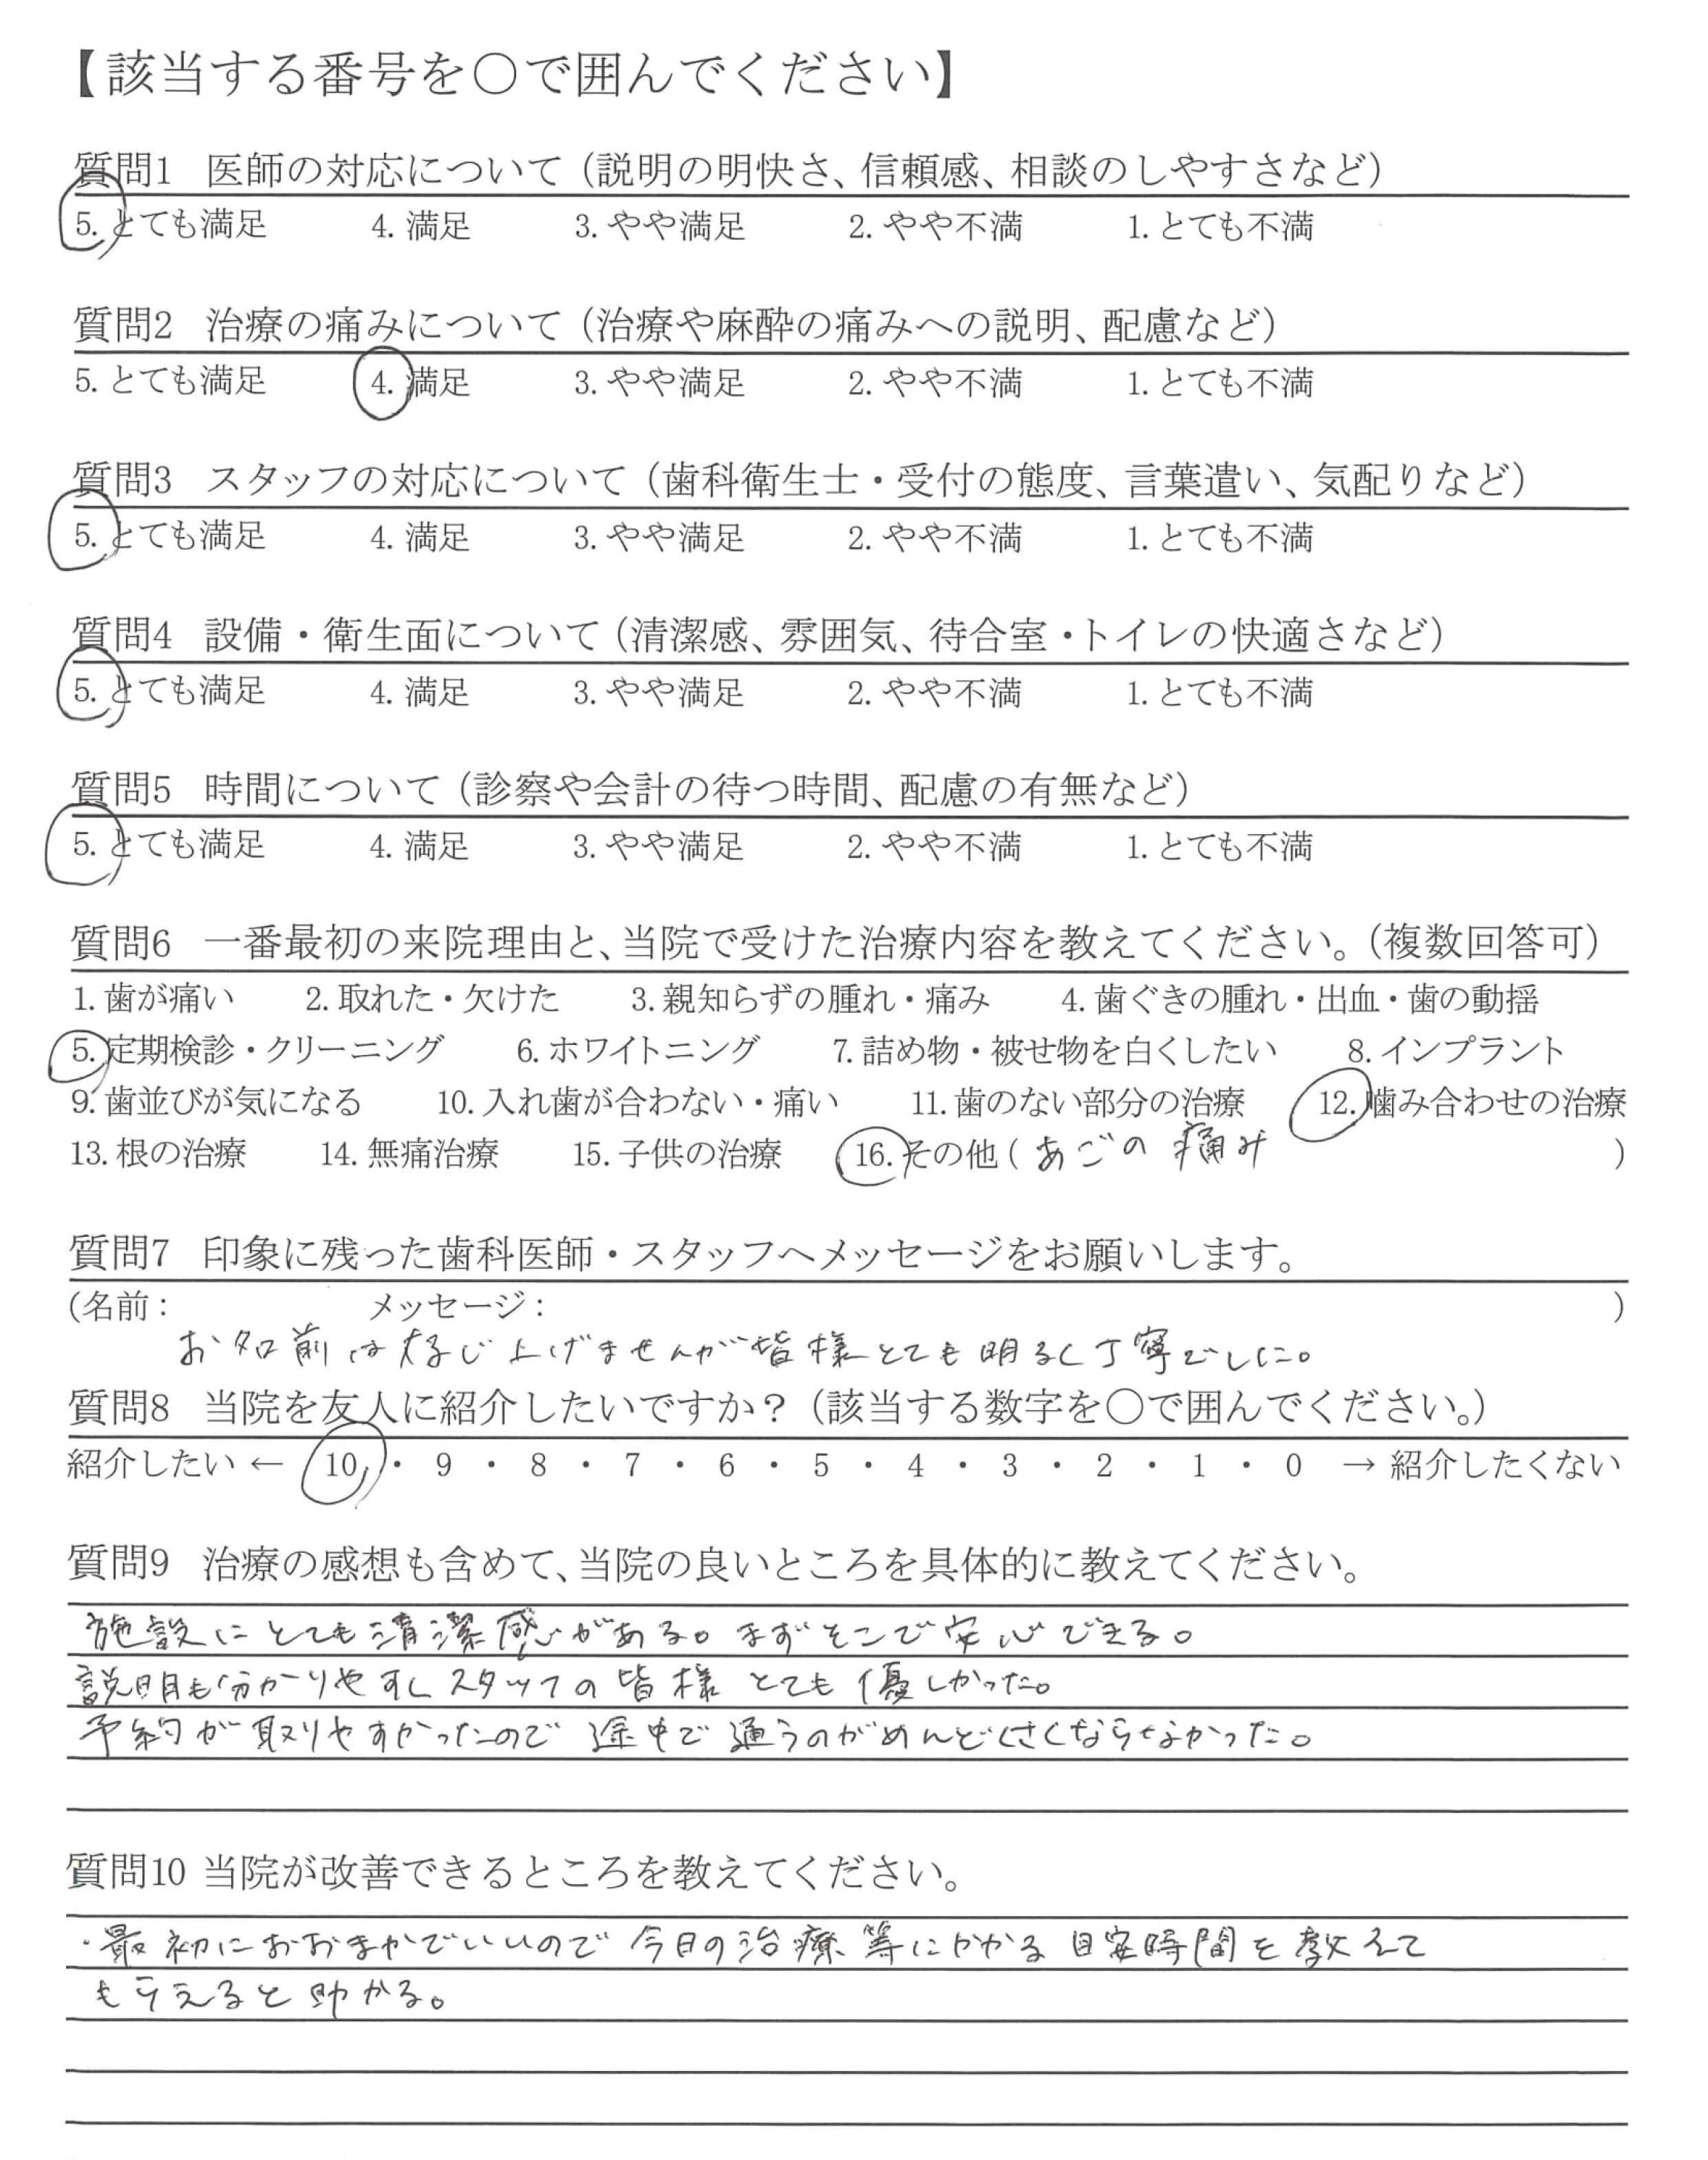 【該当する番号を○で囲んでください】
質問1 医師の対応について（説明の明快さ、信頼感、相談のしやすさなど）
5. とても満足 4. 満足 3. やや満足 2. やや不満 1. とても不満
質問2 治療の痛みについて（治療や麻酔の痛みへの説明、配慮など）
5. とても満足 4. 満足 3. やや満足 2. やや不満 1. とても不満
質問3 スタッフの対応について（歯科衛生士・受付の態度、言葉遣い、気配りなど）
5. とても満足 4. 満足 3. やや満足 2. やや不満 1. とても不満
質問4 設備・衛生面について（清潔感、雰囲気、待合室・トイレの快適さなど）
5. とても満足 4. 満足 3. やや満足 2. やや不満 1. とても不満
質問5 時間について（診察や会計の待つ時間、配慮の有無など）
5. とても満足 4. 満足 3. やや満足 2. やや不満 1. とても不満
質問6 一番最初の来院理由と、当院で受けた治療内容を教えてください。（複数回答可）
1. 歯が痛い 2. 取れた・欠けた 3. 親知らずの腫れ・痛み 4. 歯ぐきの腫れ・出血・歯の動揺
5. 定期検診・クリーニング 6. ホワイトニング 7. 詰め物・被せ物を白くしたい 8. インプラント
9. 歯並びが気になる 10. 入れ歯が合わない・痛い 11. 歯のない部分の治療 12. 噛み合わせの治療
13. 根の治療 14. 無痛治療 15. 子供の治療 16. その他（あごの痛み ）
質問7 印象に残った歯科医師・スタッフへメッセージをお願いします。
（名前： メッセージ： ）
お名前は存じ上げませんが皆様とても明るく丁寧でした。
質問8 当院を友人に紹介したいですか？（該当する数字を○で囲んでください。）
紹介したい ← 10 ・ 9 ・ 8 ・ 7 ・ 6 ・ 5 ・ 4 ・ 3 ・ 2 ・ 1 ・ 0 → 紹介したくない
質問9 治療の感想も含めて、当院の良いところを具体的に教えてください。
施設にとても清潔感がある。まずそこで安心できる。
説明も分かりやすくスタッフの皆様とても優しかった。
予約が取りやすかったので途中で通うのがめんどくさくならなかった。
質問10 当院が改善できるところを教えてください。
・最初におおまかでいいので今日の治療等にかかる目安時間を教えて
もらえると助かる。